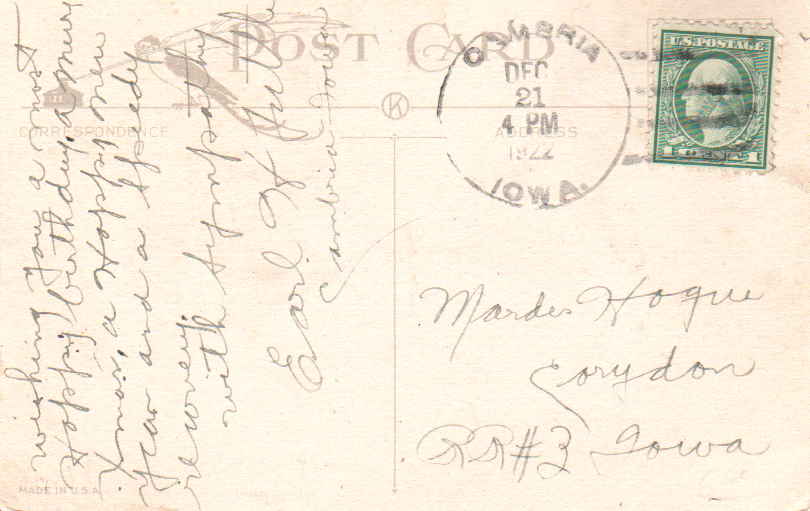 POST CARD
CORRESPONDENCE
ADDRESS
K
CAMBRIA
DEC
21
4 PM
1922
IOWA.
U.S. POSTAGE
1 CENT 1
wishing you a most
Happy birthday, a Merry
Xmas, a Happy New
Year and a Speedy
recovery.
with sympathy
Earl H
Cambria Iowa
Mardes Hogue
Corydon
RR#3 Iowa
MADE IN U.S.A.